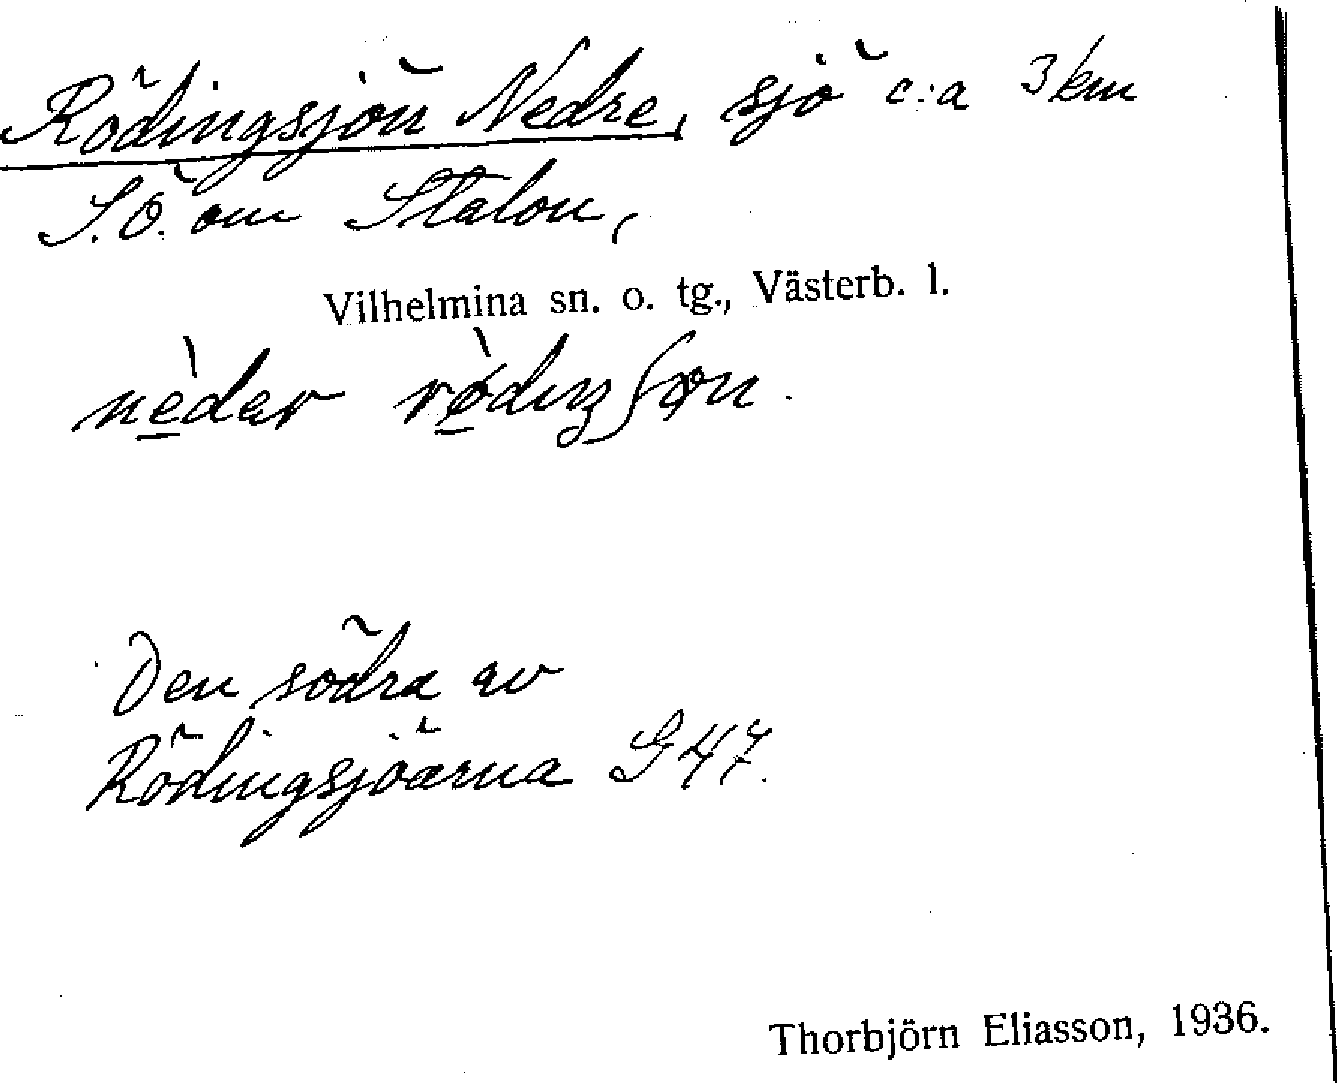 Rödingsjön Nedre, sjö c:a 3 km
S.Ö. om Stalon,
Vilhelmina sn. o. tg., Västerb. l.
nèdar
Den södra av
Rödingsjöarna G 47.
Thorbjörn Eliasson, 1936.